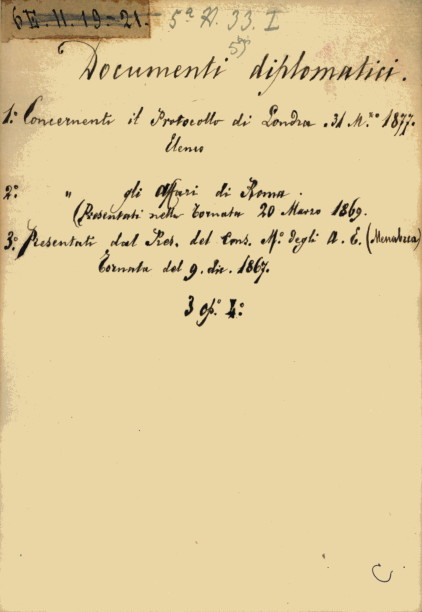 6 II. 11. 19-21. 5ª A. 33. I
55
Documenti diplomatici.
1º: Concernenti il Protocollo di Londra. 31 M.zo 1877.
Elenco
2º: " gli affari di Roma.
(Presentati nella Tornata 20 Marzo 1869.
3º: Presentati dal Pres. del Cons. M.º degli A. E. (Menabrea)
Tornata del 9. dic. 1867.
3 op. 4º: